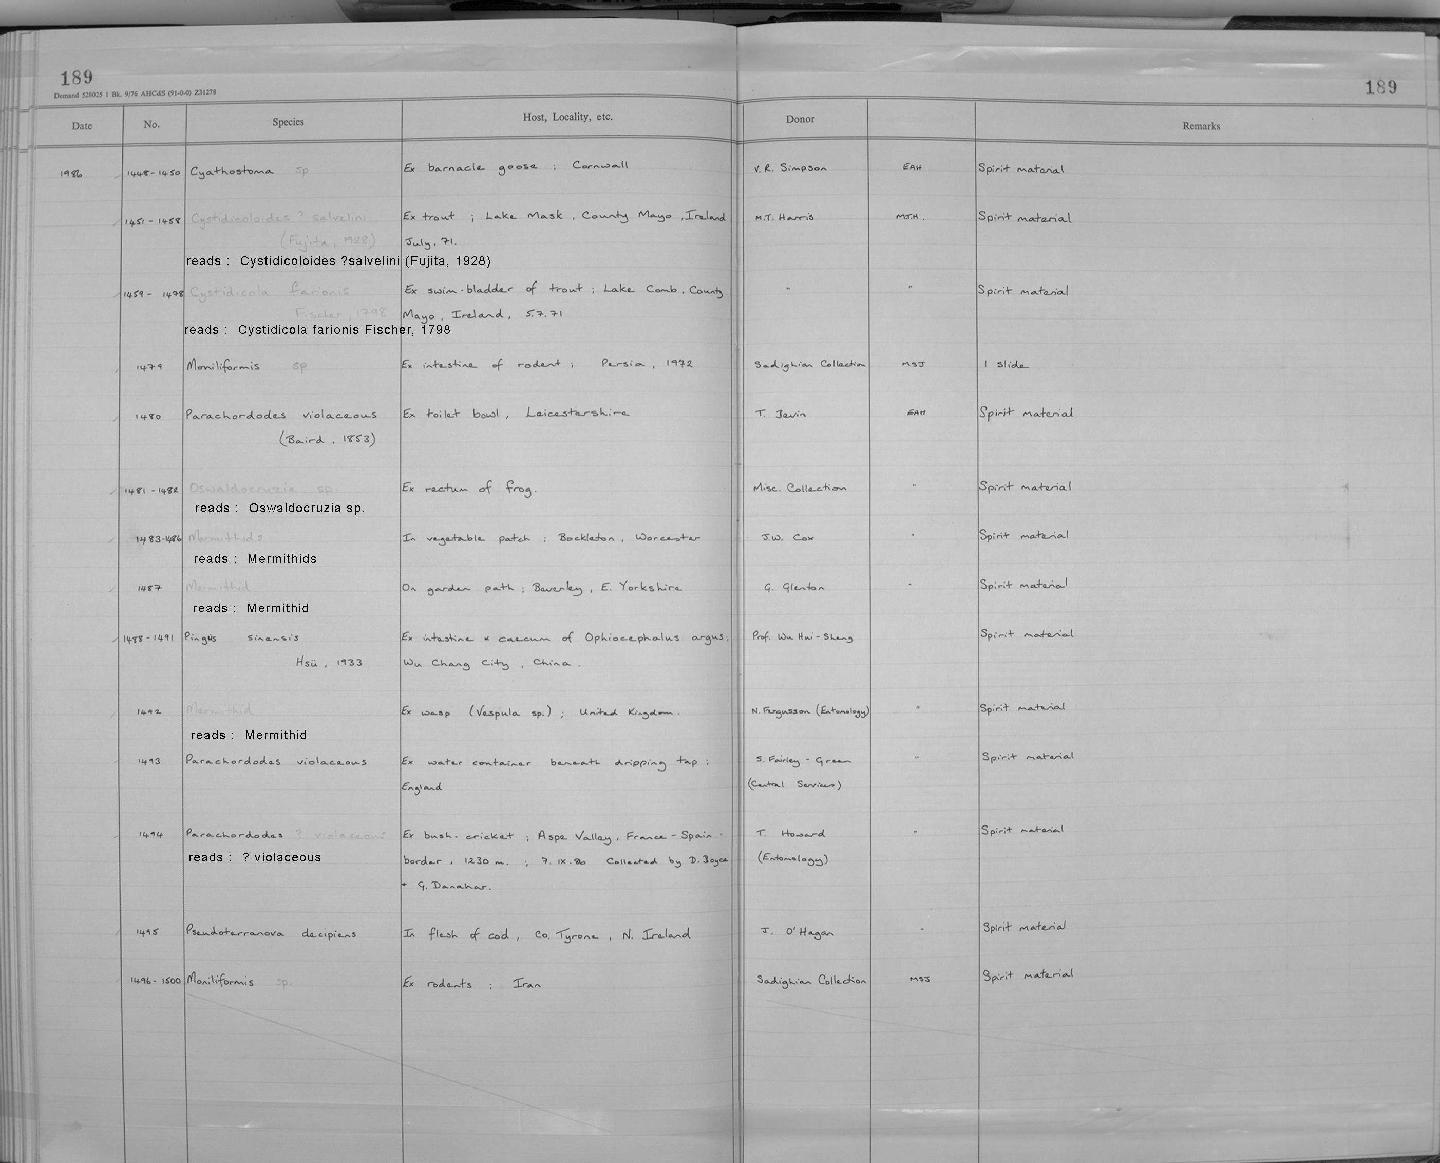 189
189
Demand 528025 1 Bk. 9/76 AHCdS (91-0-0) Z31278
Date No. Species Host, Locality, etc. Donor Remarks
1986 1448-1450 Cyathostoma sp Ex barnacle goose ; Cornwall V.R. Simpson EAH Spirit material
1451 - 1458 Cystidicoloides ? salvelini Ex trout ; Lake Mask , County Mayo , Ireland M.T. Harris M.T.H. Spirit material
(Fujita, 1928) July, 71.
reads : Cystidicoloides ?salvelini (Fujita, 1928)
1459 - 1478 Cystidicola farionis Ex swim-bladder of trout ; Lake Comb , County " " Spirit material
Fischer, 1798 Mayo , Ireland , 5.7.71
reads : Cystidicola farionis Fischer, 1798
1479 Moniliformis sp Ex intestine of rodent ; Persia , 1972 Sadighian Collection MSJ 1 slide
1480 Parachordodes violaceous Ex toilet bowl , Leicestershire T. Devin EAH Spirit material
(Baird , 1853)
1481 - 1482 Oswaldocruzia sp. Ex rectum of frog. Misc. Collection " Spirit material
reads : Oswaldocruzia sp.
1483-1486 Mermithids In vegetable patch ; Bockleton , Worcester J.W. Cox " Spirit material
reads : Mermithids
1487 Mermithid On garden path ; Beverley , E. Yorkshire G. Glenton " Spirit material
reads : Mermithid
1488 - 1491 Pingus sinensis Ex intestine & caecum of Ophiocephalus argus; Prof. Wu Hui-Sheng Spirit material
Hsü , 1933 Wu Chang City , China .
1492 Mermithid Ex wasp (Vespula sp.) ; United Kingdom. N. Fergusson (Entomology) " Spirit material
reads : Mermithid
1493 Parachordodes violaceous Ex water container beneath dripping tap ; S. Fairley - Green " Spirit material
England (Central Services)
1494 Parachordodes ? violaceous Ex bush-cricket ; Aspe Valley, France - Spain - T. Howard " Spirit material
reads : ? violaceous border , 1230 m. ; 7.IX.80 Collected by D. Boyce (Entomology)
+ G. Danahar.
1495 Pseudoterranova decipiens In flesh of cod , Co. Tyrone , N. Ireland J. O'Hagan " Spirit material
1496 - 1500 Moniliformis sp. Ex rodents ; Iran Sadighian Collection MSJ Spirit material